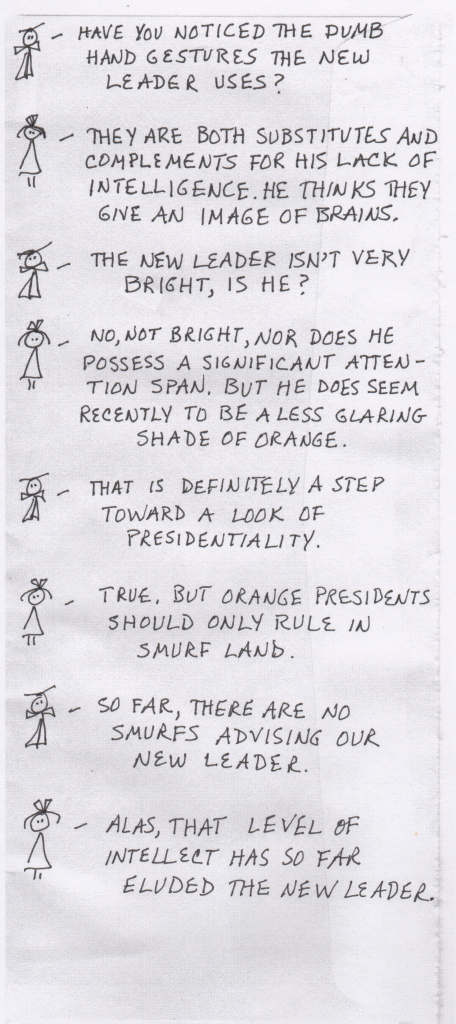 - HAVE YOU NOTICED THE DUMB
HAND GESTURES THE NEW
LEADER USES?
- THEY ARE BOTH SUBSTITUTES AND
COMPLEMENTS FOR HIS LACK OF
INTELLIGENCE. HE THINKS THEY
GIVE AN IMAGE OF BRAINS.
- THE NEW LEADER ISN'T VERY
BRIGHT, IS HE?
- NO, NOT BRIGHT, NOR DOES HE
POSSESS A SIGNIFICANT ATTEN-
TION SPAN. BUT HE DOES SEEM
RECENTLY TO BE A LESS GLARING
SHADE OF ORANGE.
- THAT IS DEFINITELY A STEP
TOWARD A LOOK OF
PRESIDENTIALITY.
- TRUE. BUT ORANGE PRESIDENTS
SHOULD ONLY RULE IN
SMURF LAND.
- SO FAR, THERE ARE NO
SMURFS ADVISING OUR
NEW LEADER.
- ALAS, THAT LEVEL OF
INTELLECT HAS SO FAR
ELUDED THE NEW LEADER.